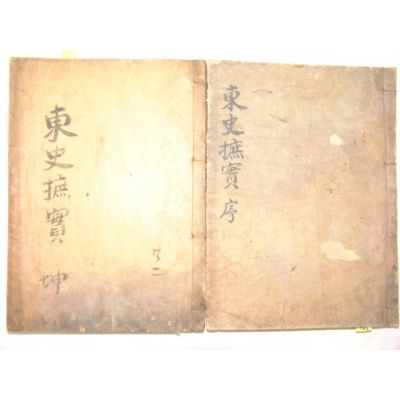 東史摭實 序
東史摭實 坤